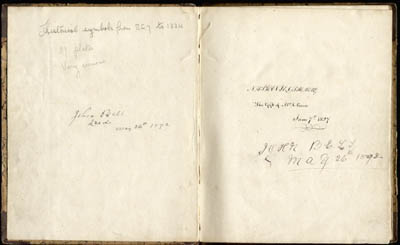 Historical symbols from 827 to 1832
37 plates
Very rare
John Bell
Leeds
May 26th 1892
The Gift of Mr
June 7th 1837
JOHN BELL
MAY 26th 1892